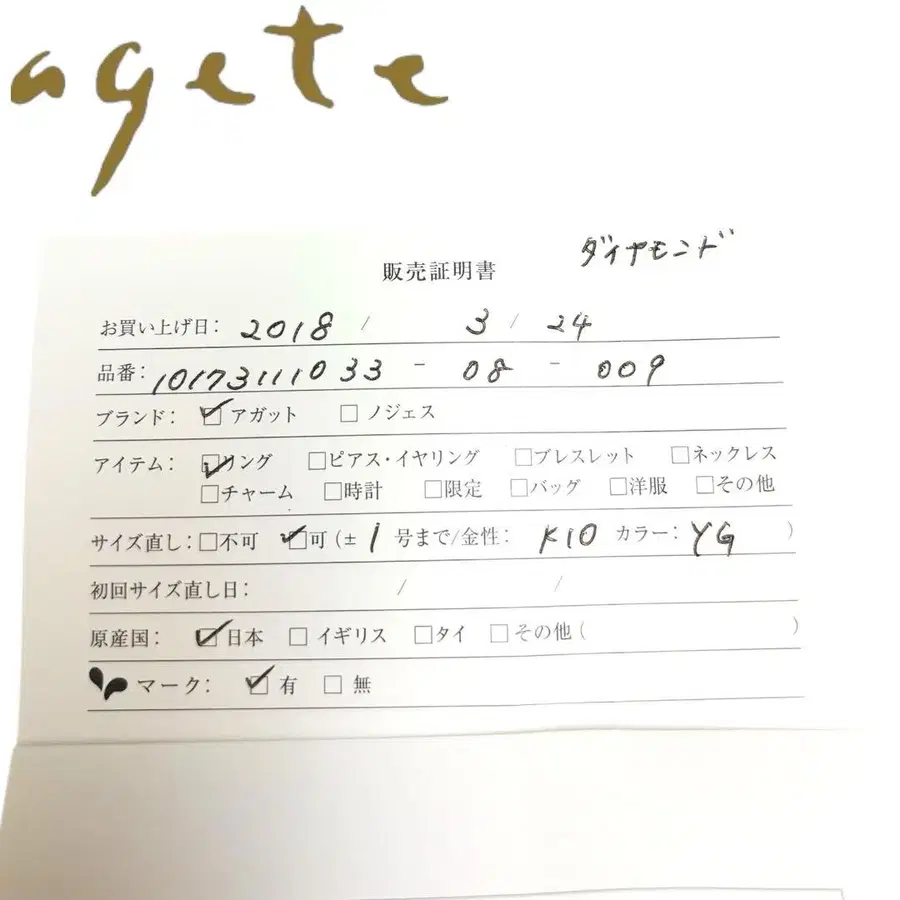 agete
ダイヤモンド
販売証明書
お買い上げ日: 2018 / 3 / 24
品番: 10173111033 - 08 - 009
ブランド: ☑ アガット □ ノジェス
アイテム: ☑リング □ピアス・イヤリング □ブレスレット □ネックレス
□チャーム □時計 □限定 □バッグ □洋服 □その他
サイズ直し: □不可 ☑可 (± 1 号まで/金性: K10 カラー: YG )
初回サイズ直し日: / /
原産国: ☑日本 □ イギリス □タイ □その他 ( )
マーク: ☑ 有 □ 無